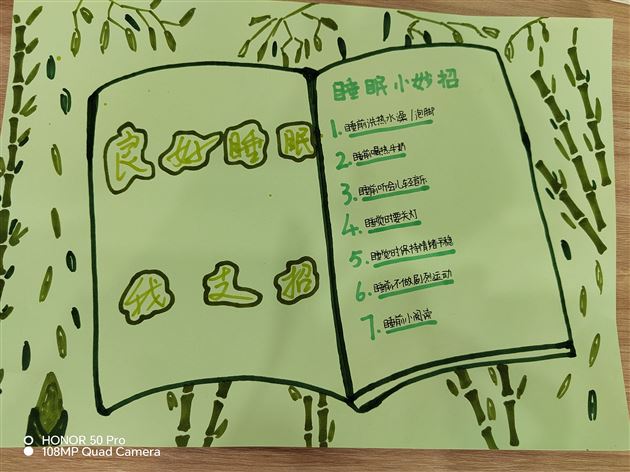 良好睡眠
我支招
睡眠小妙招
1.睡前洗热水澡/泡脚
2.睡前喝热牛奶
3.睡前听会儿轻音乐
4.睡觉时要关灯
5.睡觉时保持情绪平稳
6.睡前不做剧烈运动
7.睡前小阅读
HONOR 50 Pro
108MP Quad Camera